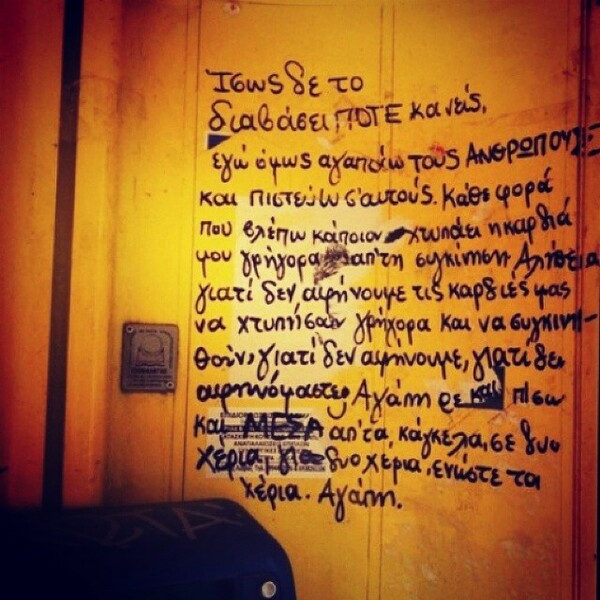 Ίσως δε το
διαβάσει ΠΟΤΕ κανείς,
εγώ όμως αγαπάω τους ΑΝΘΡΩΠΟΥΣ
και πιστεύω σ'αυτούς. Κάθε φορά
που βλέπω κάποιον χτυπάει η καρδιά
μου γρήγορα απ'τη συγκίνηση Αλήθεια
γιατί δεν αφήνουμε τις καρδιές μας
να χτυπήσουν γρήγορα και να συγκινη-
θούν, γιατί δεν αφήνουμε, γιατί δεν
αφηνόμαστε, Αγάπη ρε και πίσω
και ΜΕΣΑ απ'τα, κάγκελα, σε δυο
χέρια, για δυο χέρια, ενώστε τα
χέρια. Αγάπη.